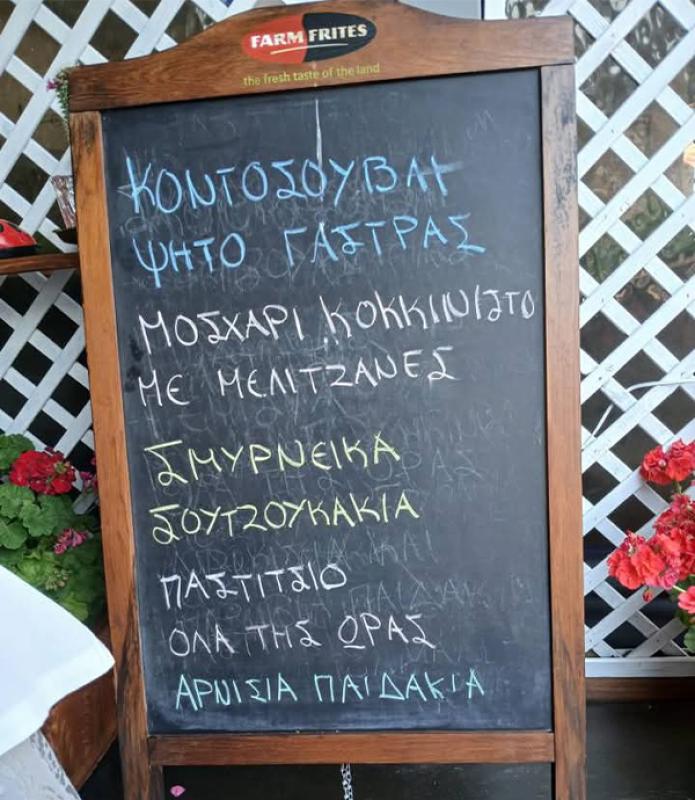 FARM FRITES
the fresh taste of the land
ΚΟΝΤΟΣΟΥΒΛΙ
ΨΗΤΟ ΓΑΣΤΡΑΣ
ΜΟΣΧΑΡΙ ΚΟΚΚΙΝΙΣΤΟ
ΜΕ ΜΕΛΙΤΖΑΝΕΣ
ΣΜΥΡΝΕΙΚΑ
ΣΟΥΤΖΟΥΚΑΚΙΑ
ΠΑΣΤΙΤΣΙΟ
ΟΛΑ ΤΗΣ ΩΡΑΣ
ΑΡΝΙΣΙΑ ΠΑΙΔΑΚΙΑ